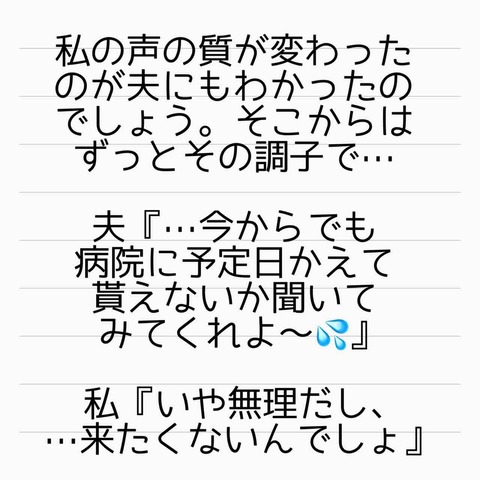 私の声の質が変わった
のが夫にもわかったの
でしょう。そこからは
ずっとその調子で…
夫『…今からでも
病院に予定日かえて
貰えないか聞いて
みてくれよ〜💦』
私『いや無理だし、
…来たくないんでしょ』